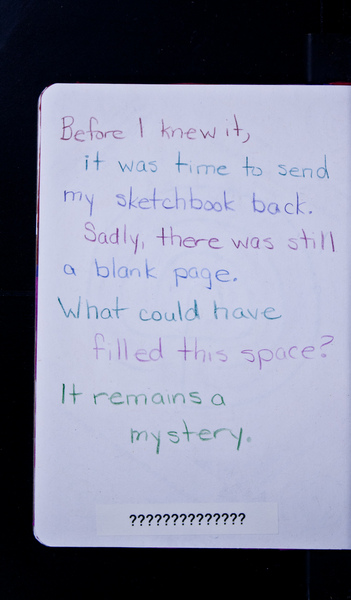 Before I knew it,
it was time to send
my sketchbook back.
Sadly, there was still
a blank page.
What could have
filled this space?
It remains a
mystery.
??????????????